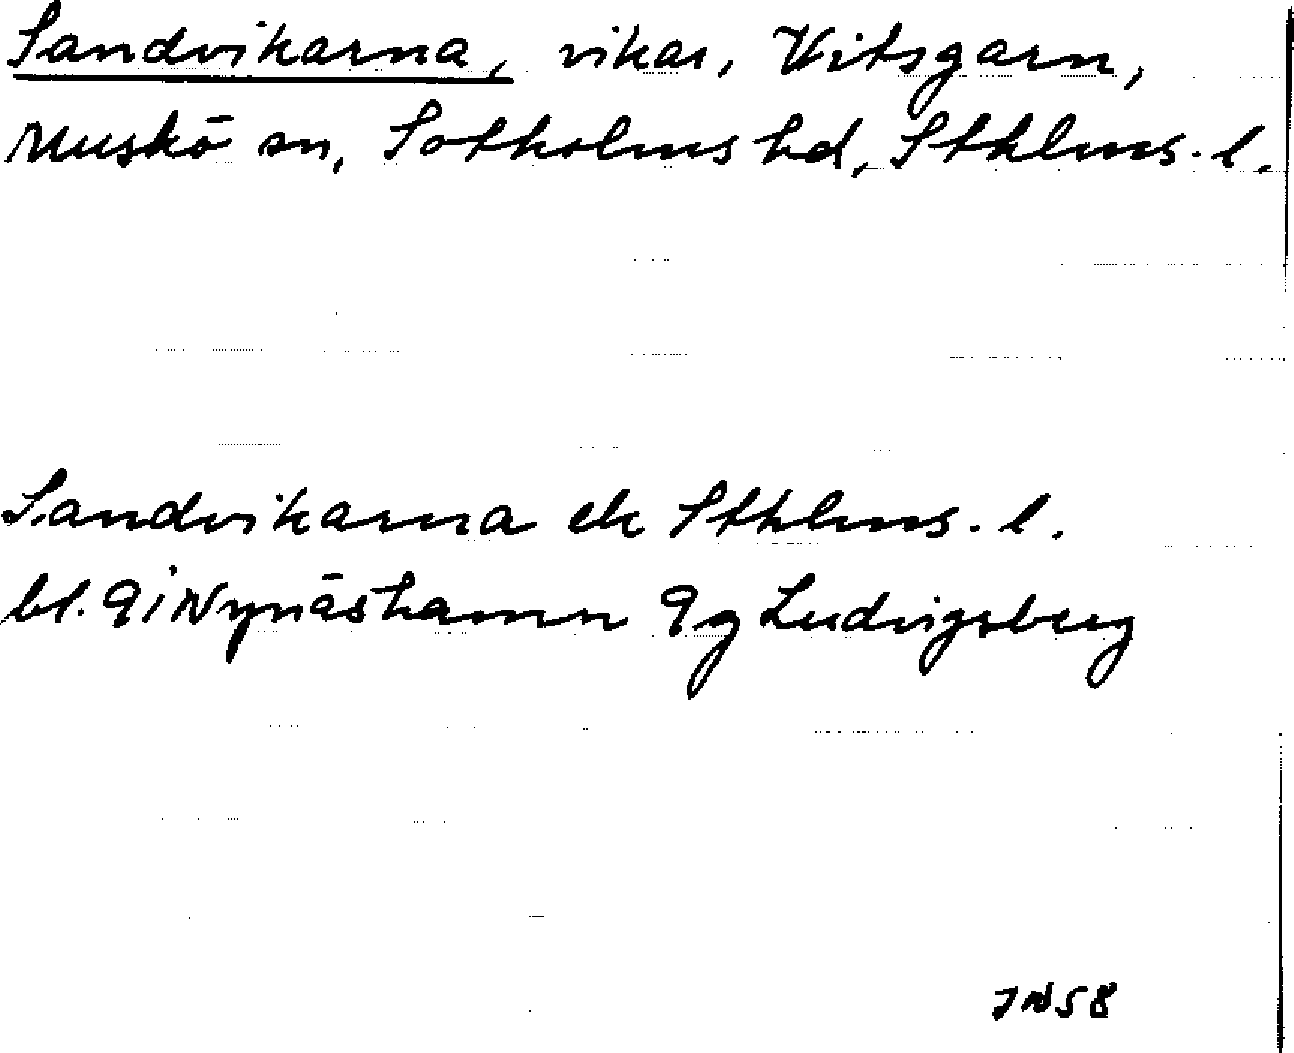 Sandvikarna, vikar, Vitsgarn,
Muskö sn, Sotholms hd, Sthlms. l.
Sandvikarna ek Sthlms. l.
bl. 9i Nynäshamn 9g Ludvigsberg
JNS8